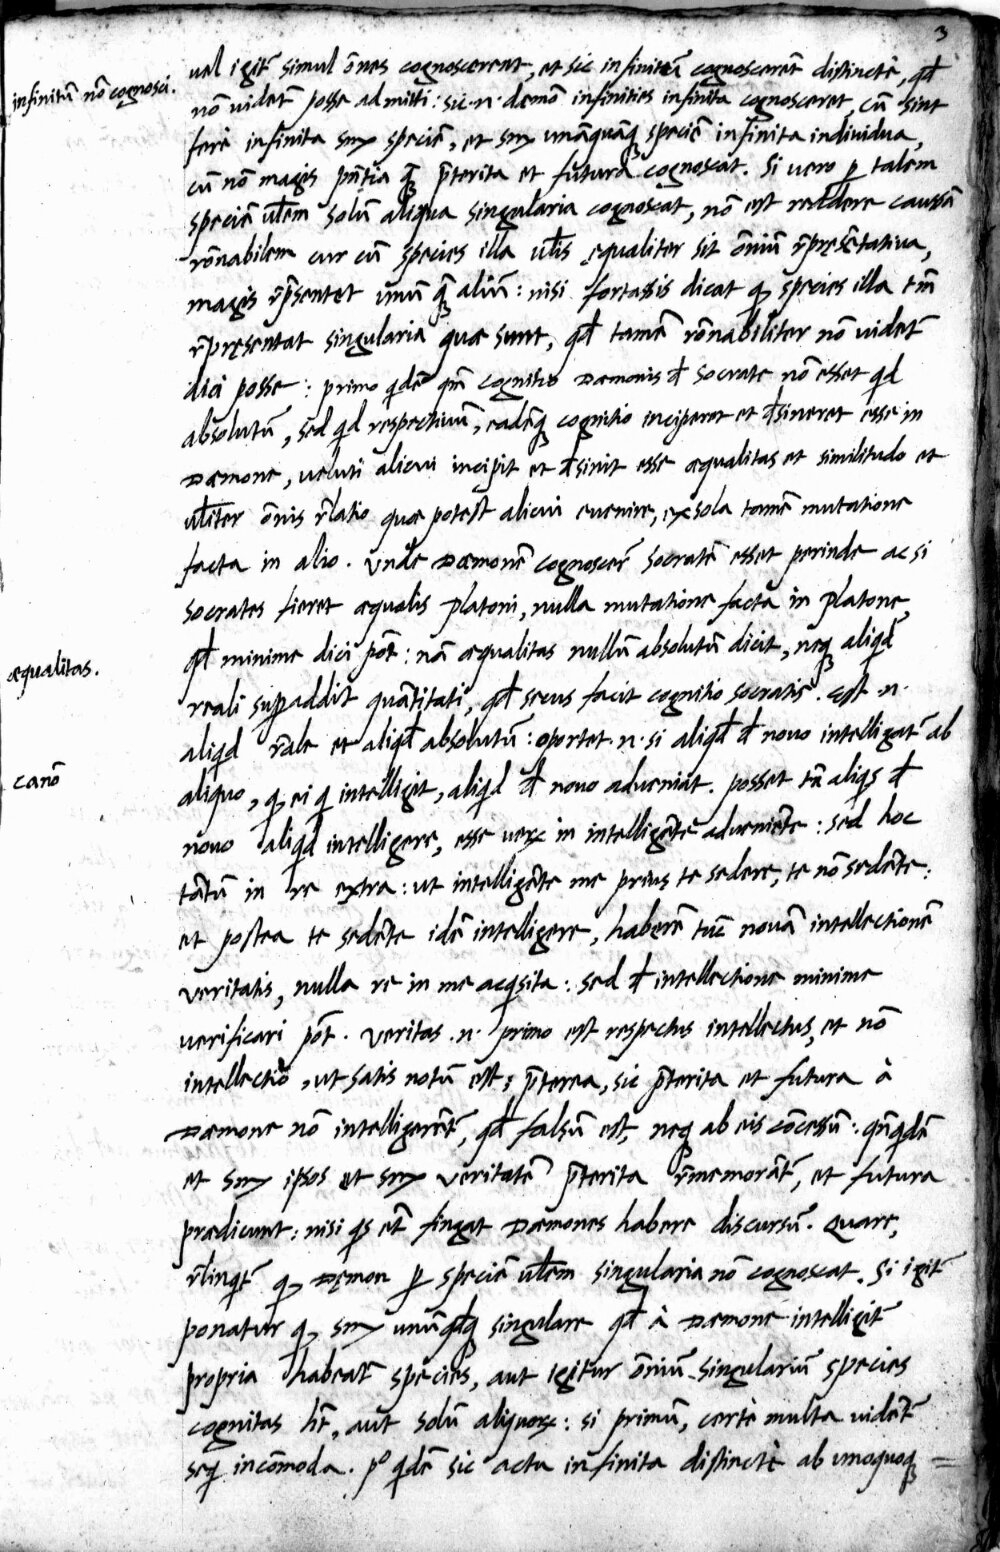 3
infinitū nō cognosci.
uel igit̄ simul ōnes cognoscerent, et sic infinitū cognoscerēt distinctè, qđ
nō uidet̄ posse admitti: sic .n. dæmō infinities infinita cognosceret, cū sint
ferè infinita sm̄ speciē, et sm̄ unāquāq; speciē infinita individua,
cū nō magis pn̄tia q̄ p̄terita et futura cognoscat. Si uero p talem
speciē ul̄em solū aliqua singularia cognoscat, nō est reddere caussā
rōnabilem cur cū species illa ul̄is ęqualiter sit ōniū r̄pręsētativa,
magis r̄p̄sentet unū q̄ aliū: nisi fortassis dicat q, species illa tm̄
r̄pręsentat singularia quæ sunt, qđ tamē rōnabiliter nō uidet̄
dici posse: primo qdē qm̄ cognitio Dæmonis đ Socrate nō esset qd
absolutū, sed qd respectivum, eadēq; cognitio inciperet et đsineret esse in
Dæmone, ueluti alicui incipit et đsinit esse æqualitas et similitudo et
ul̄iter ōnis r̄latio quæ potest alicui euenire, ex sola tamē mutatione
facta in alio. Vnde Dæmonē cognoscer̄ Socratē esset perinde ac si
Socrates fieret æqualis Platoni, nulla mutatione facta in Platone,
qđ minime dici pōt: nā æqualitas nullū absolutū dicit, neq; aliqđ
æqualitas.
reali supaddit quātitati, qđ secus facit cognitio Socratis. Est .n.
aliqd r̄ale et aliqđ absolutū: oportet .n. si aliqđ đ nouo intelligat̄ ab
canō
aliquo, q, ei q intelligit, aliqd đ nouo adueniat. posset tn̄ aliqs đ
nouo aliqd intelligere, esse uerē in intelligēte adueniēte: sed hoc
tātū in re extra: ut intelligēte me prius te sedere, te nō sedēte:
et postea te sedēte idē intelligere, haberē tūc nouā intellectionē
veritatis, nulla re in me acqsita: sed đ intellectione minime
verificari pōt. Veritas .n. primo est respectus intellectus, et nō
intellectiō, ut satis notū est: p̄terea, sic p̄terita et futura à
Dæmone nō intelligerēt̄, qđ falsū est, neq; ab eis cōcessū: qn̄qdē
et sm̄ ipsos et sm̄ veritatē p̄terita r̄memorāt̄, et futura
prædicunt: nisi qs et̄ fingat Dæmones habere discursū. Quare,
r̄linqt̄ q, Dęmon p speciē ul̄em singularia nō cognoscat. Si igit̄
ponatur q, sm̄ unūqđq; singulare qđ à Dæmone intelligit̄
propria habeat̄ species, aut igitur ōniū singulariū species
cognitas hn̄t, aut solū aliquorum: si primū, certè multa uidēt̄
seq incōmoda. p° qdē sic actu infinita distinctè ab unoquoq;